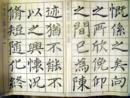 慨係之矣向
之所欣俛仰
之間以為陳
迹猶不能不
以之興懷況
脩短隨化終